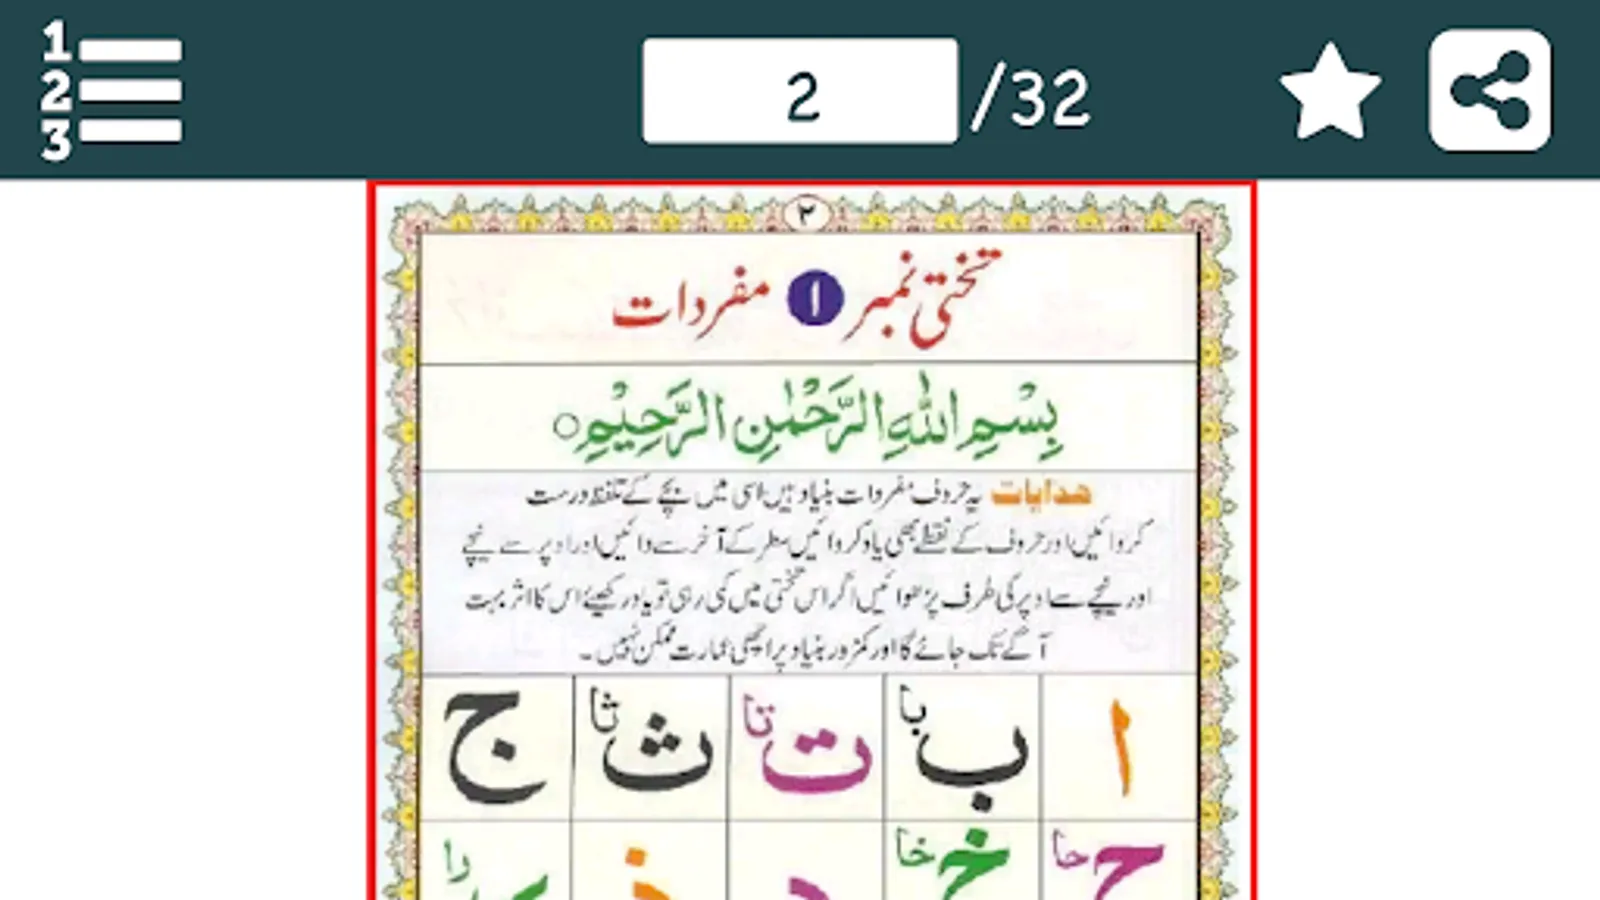 1
2
3
2 /32
٢
تختی نمبر ١ مفردات
بِسْمِ اللّٰهِ الرَّحْمٰنِ الرَّحِيْمِ ○
ھدایات یہ حروف مفردات بنیاد ہیں اسی میں بچے کے تلفظ درست
کروائیں اور حروف کے نقطے بھی یاد کروائیں سطر کے آخر سے دائیں اور اوپر سے نیچے
اور نیچے سے اوپر کی طرف پڑھوائیں اگر اس تختی میں کمی رہی تو یاد رکھیئے اس کا اثر بہت
آگے تک جائے گا اور کمزور بنیاد پر اچھی عمارت ممکن نہیں۔
ا ب با ت تا ث ثا ج
ح حا خ خا د ذ ر را